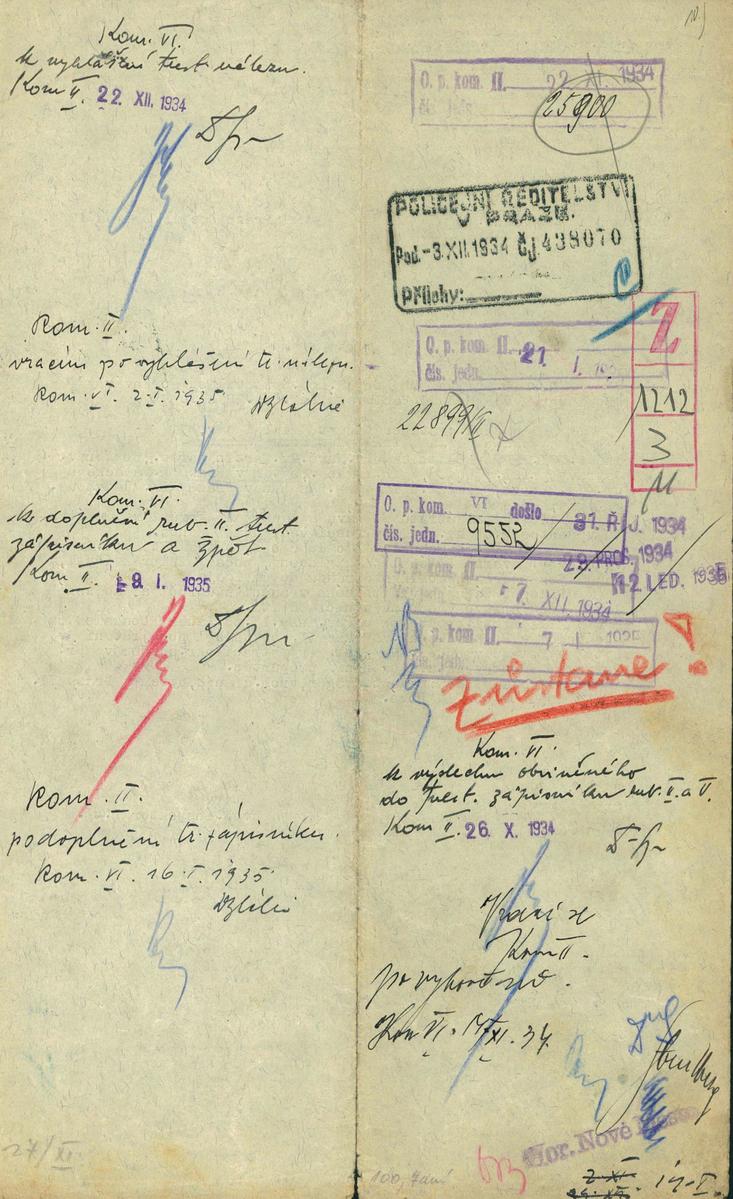 Kom. VI.
k vyhlášení trest nálezu.
Kom II. 22 XII. 1934
Kom. II.
vracím po vyhlášení tr. nálezu.
Kom. VI. 2. I. 1935
Kom. VI.
k doplnění rub. II. trest.
zápisníku a zpět
Kom. II. 19. I. 1935
Kom. II.
po doplnění tr. zápisníku.
Kom. VI. 16. I. 1935
27/XI.
O. p. kom. II. 22 XI. 1934
čís. jedn.
25900
POLICEJNÍ ŘEDITELSTVÍ
V PRAZE.
Pod. -3. XII. 1934 Čj. 438070
Přílohy:
O. p. kom. II. 21. I.
čís. jedn.
22899/II
Z
1212
3
O. p. kom. VI došlo 31. ŘÍJ. 1934
čís. jedn. 9552
29. PROS. 1934
12. LED. 1935
O. p. kom. II.
7. XII. 1934
O. p. kom. II. 7 I 1935
čís. jedn.
Zůstane!
Kom. VI.
k výslechu obviněného
do trest. zápisníku rub. II. a V.
Kom II. 26. X. 1934
Vrací se
Kom II.
po vykonání.
Kom VI. XI. 34.
Hor. Nové Město
100,